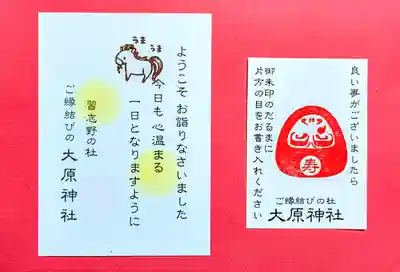 ようこそ お詣りなさいました
うま
うま
今日も 心温まる
一日となりますように
習志野の杜
ご縁結びの 大原神社
良い事がございましたら
御朱印のだるまに
片方の目をお書き入れください
寿
ご縁結びの杜
大原神社